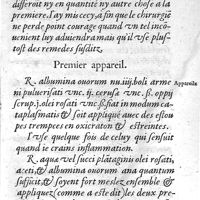 differoit ny en quantité ny autre chose a la
premiere. J'ay mis cecy a fin que le chirurgiē
ne perde point courage quand vn tel incon-
uenient luy aduiendra mais qu'il vse plus-
tost des remedes susditz.
Premier appareil.
R. albumina ouorum nu.iiij.boli arme Appareils
ni puluerisati vnc. ij. cerusæ vnc. ß. oppij
scrup.j.olei rosati vnc. ß.fiat in modum ca-
taplasmatis & soit appliqué auec des estou
pes trempees en oxicratum & estreintes.
I'vse quelque fois de celuy qui sensuit
quand ie crains inflammation.
R. aqua vel succi plātaginis olei rosati,
aceti, & albumina ouorum ana quantum
sufficit, & soyent fort meslez ensemble &
appliquez (comme a esté dit) les deux pre-